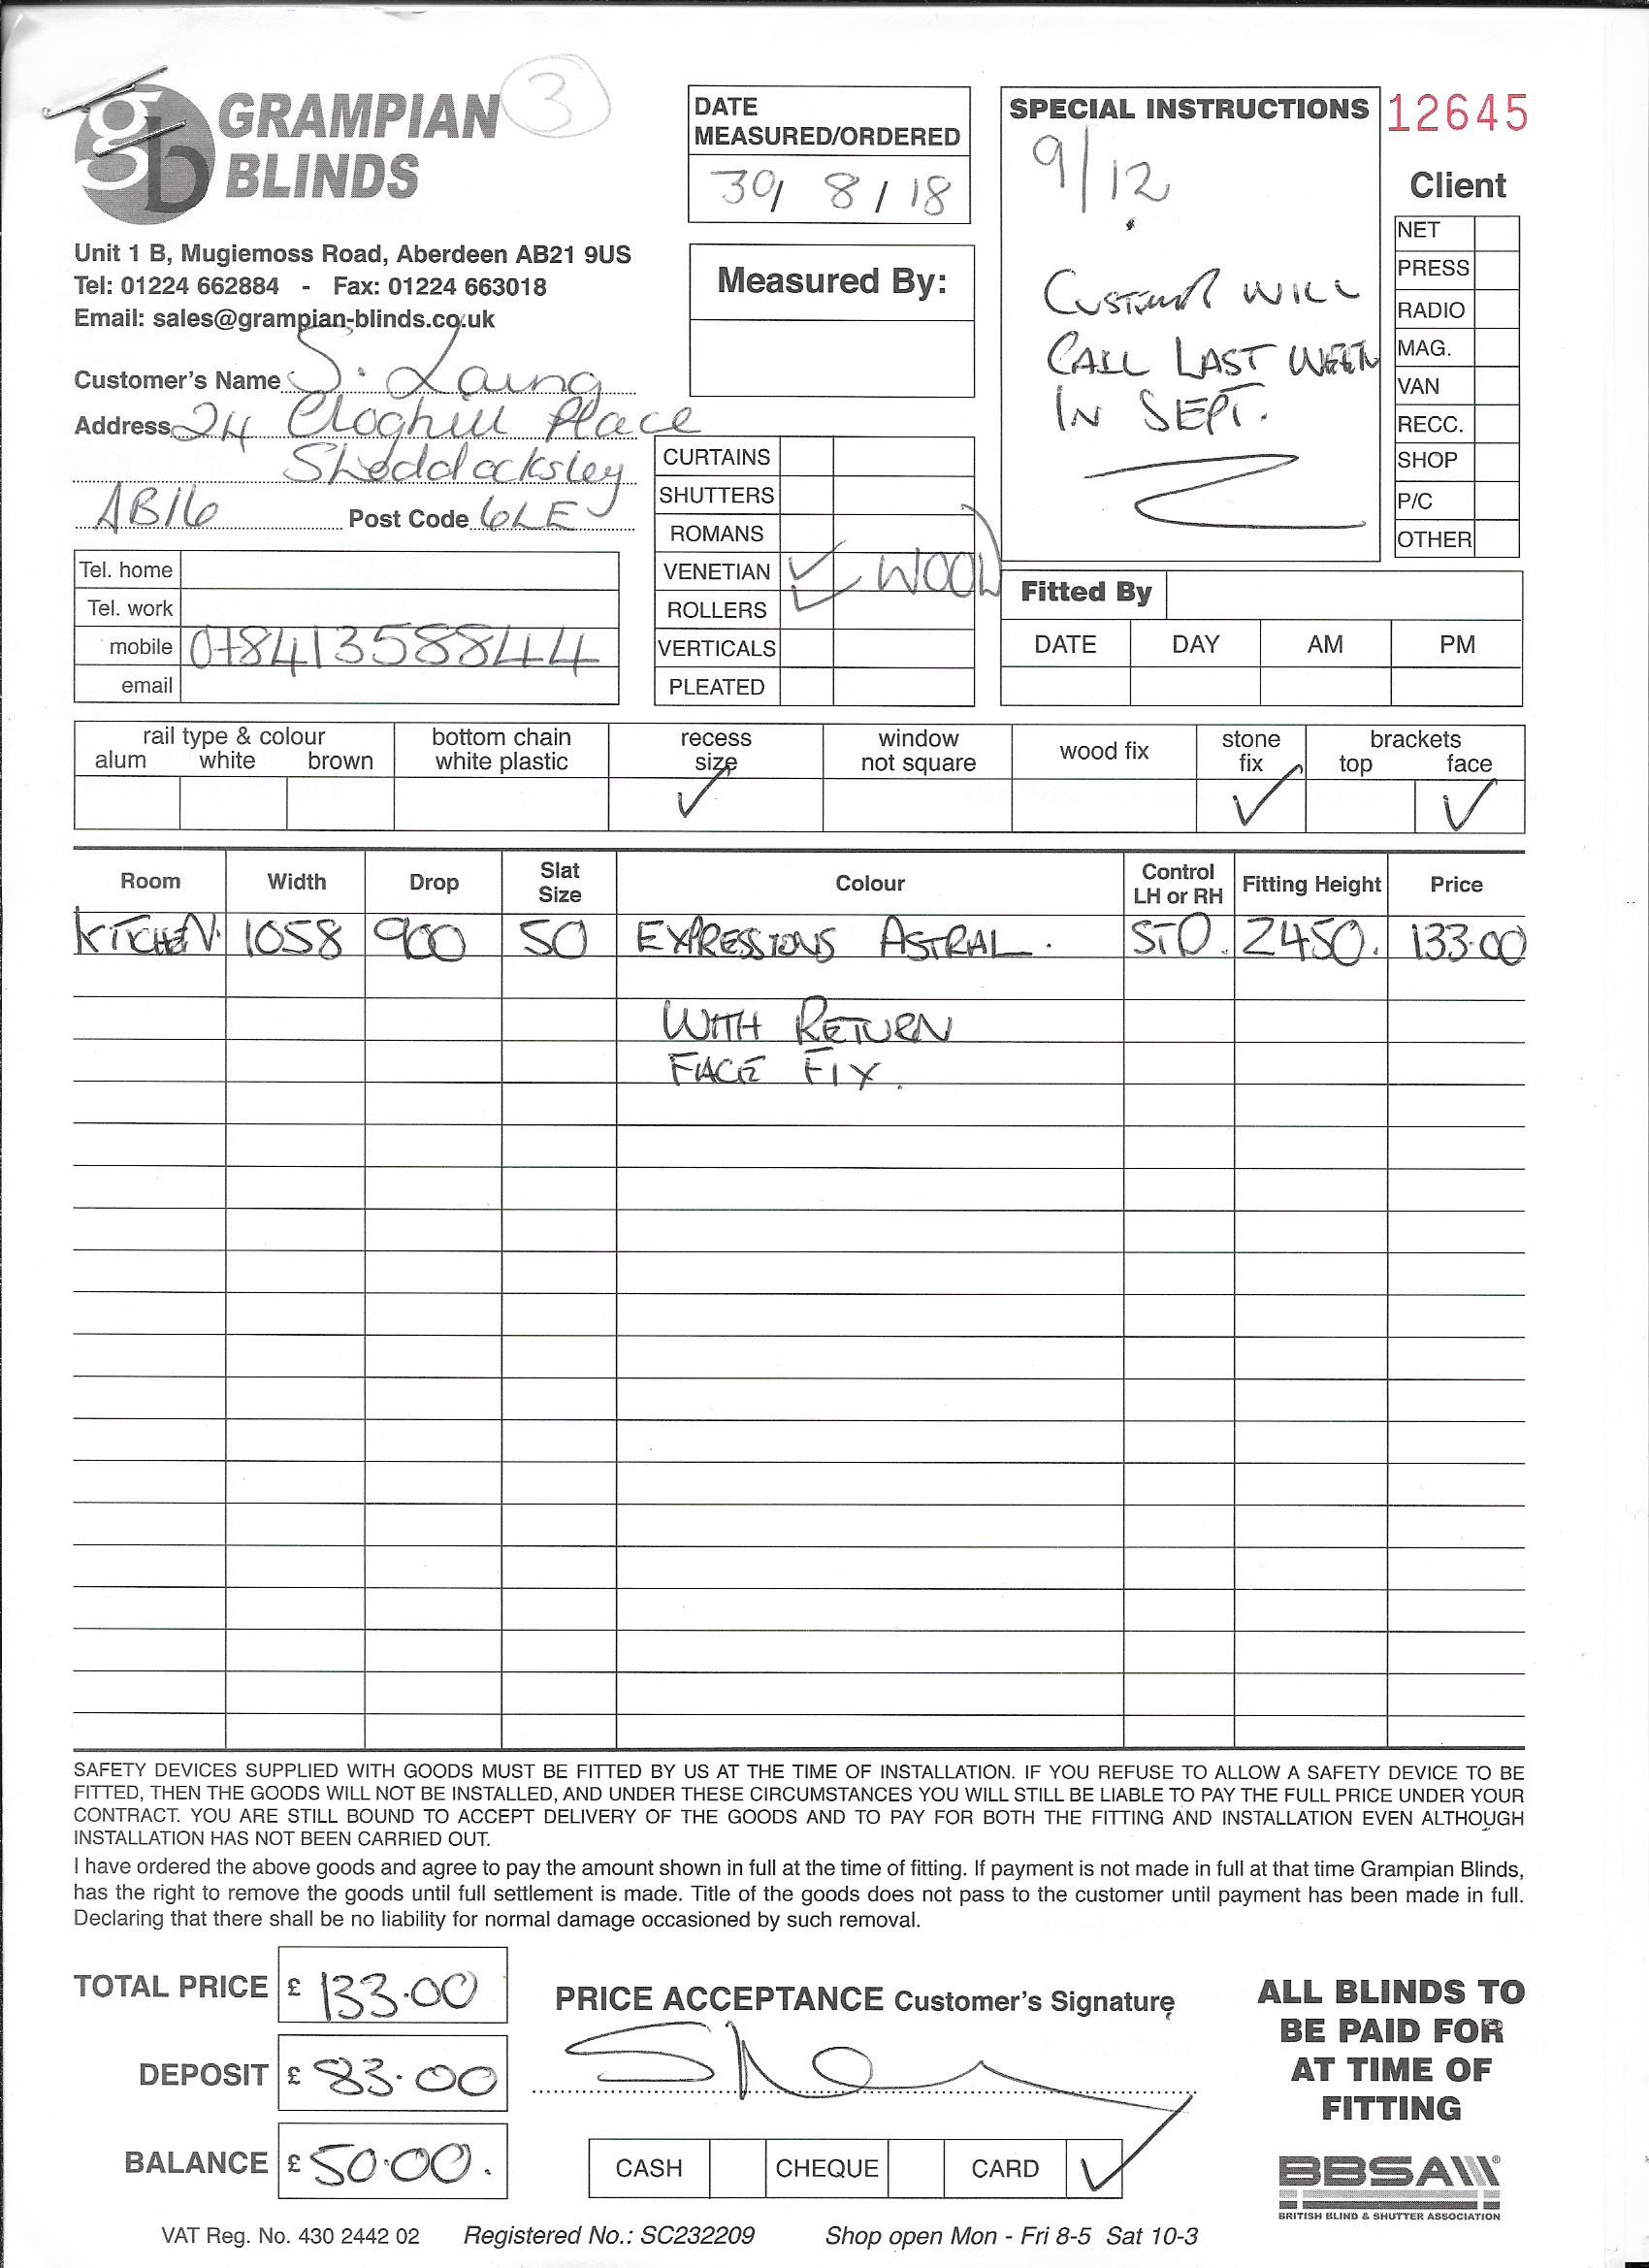 gb GRAMPIAN BLINDS
3
DATE MEASURED/ORDERED
30/ 8 / 18
Measured By:
SPECIAL INSTRUCTIONS
9/12
CUSTOMER WILL
CALL LAST WEEK
IN SEPT.
12645
Client
NET
PRESS
RADIO
MAG.
VAN
RECC.
SHOP
P/C
OTHER
Unit 1 B, Mugiemoss Road, Aberdeen AB21 9US
Tel: 01224 662884 - Fax: 01224 663018
Email: sales@grampian-blinds.co.uk
Customer's Name S. Laing
Address 24 Cloghill Place
Sheddocksley
AB16 Post Code 6LE
Tel. home
Tel. work
mobile 07841358844
email
CURTAINS
SHUTTERS
ROMANS
VENETIAN ✓ WOOD
ROLLERS ✓
VERTICALS
PLEATED
Fitted By
DATE DAY AM PM
rail type & colour bottom chain recess window wood fix stone brackets
alum white brown white plastic size not square fix top face
✓ ✓ ✓
Room Width Drop Slat Size Colour Control LH or RH Fitting Height Price
KITCHEN. 1058 900 50 EXPRESSIONS ASTRAL. STD. 2450. 133.00
WITH RETURN
FACE FIX.
SAFETY DEVICES SUPPLIED WITH GOODS MUST BE FITTED BY US AT THE TIME OF INSTALLATION. IF YOU REFUSE TO ALLOW A SAFETY DEVICE TO BE
FITTED, THEN THE GOODS WILL NOT BE INSTALLED, AND UNDER THESE CIRCUMSTANCES YOU WILL STILL BE LIABLE TO PAY THE FULL PRICE UNDER YOUR
CONTRACT. YOU ARE STILL BOUND TO ACCEPT DELIVERY OF THE GOODS AND TO PAY FOR BOTH THE FITTING AND INSTALLATION EVEN ALTHOUGH
INSTALLATION HAS NOT BEEN CARRIED OUT.
I have ordered the above goods and agree to pay the amount shown in full at the time of fitting. If payment is not made in full at that time Grampian Blinds,
has the right to remove the goods until full settlement is made. Title of the goods does not pass to the customer until payment has been made in full.
Declaring that there shall be no liability for normal damage occasioned by such removal.
TOTAL PRICE £ 133.00
DEPOSIT £ 83.00
BALANCE £ 50.00.
PRICE ACCEPTANCE Customer's Signature
CASH CHEQUE CARD ✓
ALL BLINDS TO
BE PAID FOR
AT TIME OF
FITTING
BBSA
BRITISH BLIND & SHUTTER ASSOCIATION
VAT Reg. No. 430 2442 02 Registered No.: SC232209 Shop open Mon - Fri 8-5 Sat 10-3